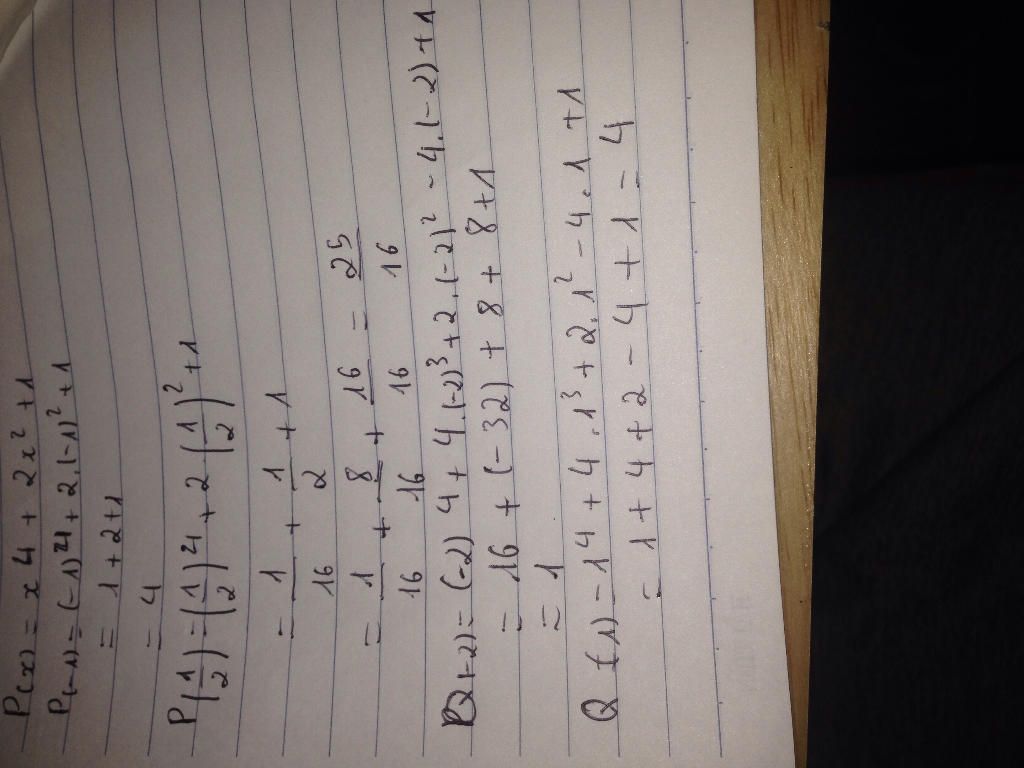 P(x) = x⁴ + 2x² + 1
P(-1) = (-1)⁴ + 2.(-1)² + 1
= 1 + 2 + 1
= 4
P(1/2) = (1/2)⁴ + 2(1/2)² + 1
= 1/16 + 1/2 + 1
= 1/16 + 8/16 + 16/16 = 25/16
Q(-2) = (-2)4 + 4.(-2)³ + 2.(-2)² - 4.(-2) + 1
= 16 + (-32) + 8 + 8 + 1
= 1
Q(1) = 1⁴ + 4.1³ + 2.1² - 4.1 + 1
= 1 + 4 + 2 - 4 + 1 = 4